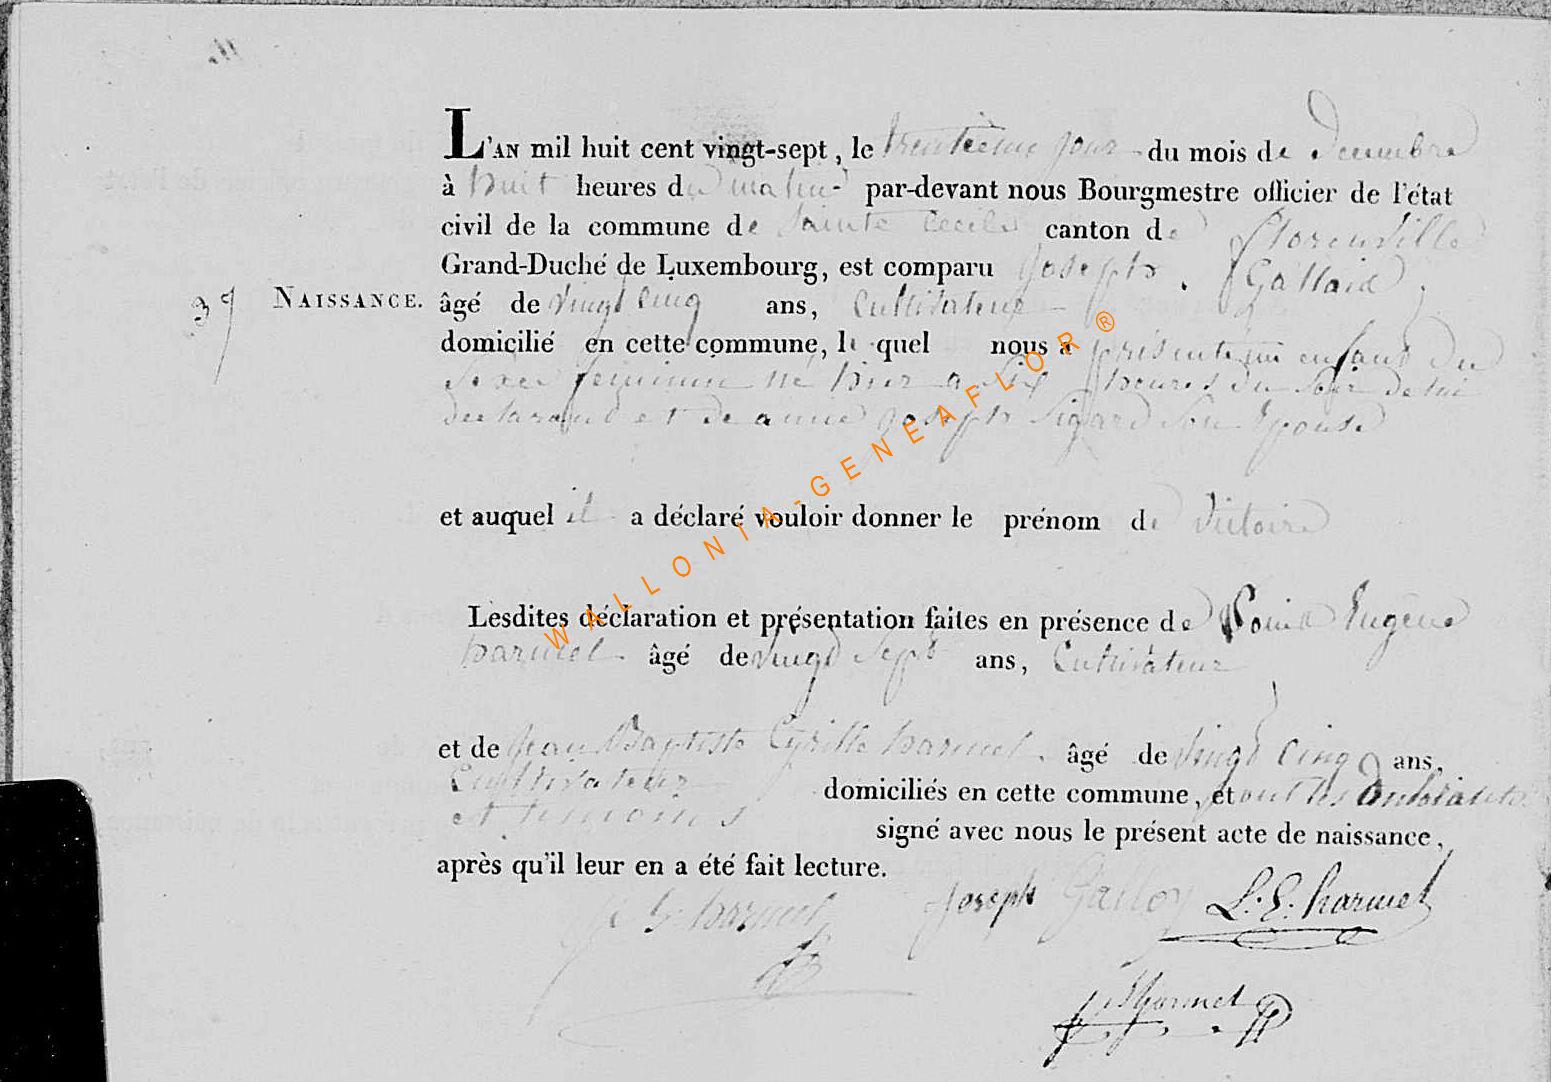 L'AN mil huit cent vingt-sept, le trentieme jour du mois de Decembre
à huit heures du matin par-devant nous Bourgmestre officier de l'état
civil de la commune de Sainte Cecile canton de florenville
Grand-Duché de Luxembourg, est comparu Joseph
39 NAISSANCE. âgé de vingt cinq ans, Cultivateur
domicilié en cette commune, le quel nous a présenté un enfant du
Sexe feminin né hier a Six heures du Soir de lui
declarand et de anne Joseph Sigard Son Epouse
et auquel il a déclaré vouloir donner le prénom de Victoire
Lesdites déclaration et présentation faites en présence de Louis Eugène
harmel âgé de vingt Sept ans, Cultivateur
et de Jean Baptiste Cyrille harmel âgé de vingt Cinq ans,
Cultivateur domiciliés en cette commune, et ont les
et temoins signé avec nous le présent acte de naissance,
après qu'il leur en a été fait lecture.
harmel Joseph Galloy L. E. harmel
Harmel
WALLONIA-GENEAFLOR®